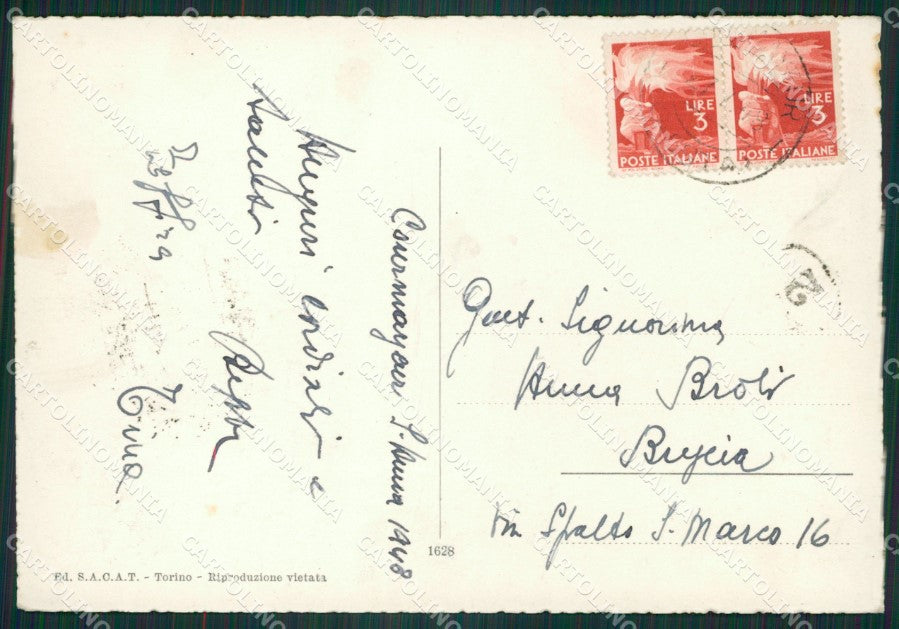 LIRE
3
POSTE ITALIANE
LIRE
3
POSTE ITALIANE
Courmayeur S. Anna 1948
Auguri cordiali e
saluti
Beppe
Zeffira
Tina.
2
Gent. Signorina
Anna Broli
Brescia
Via Spalto S. Marco 16
1628
Ed. S.A.C.A.T. - Torino - Riproduzione vietata
CARTOLINOMANIA